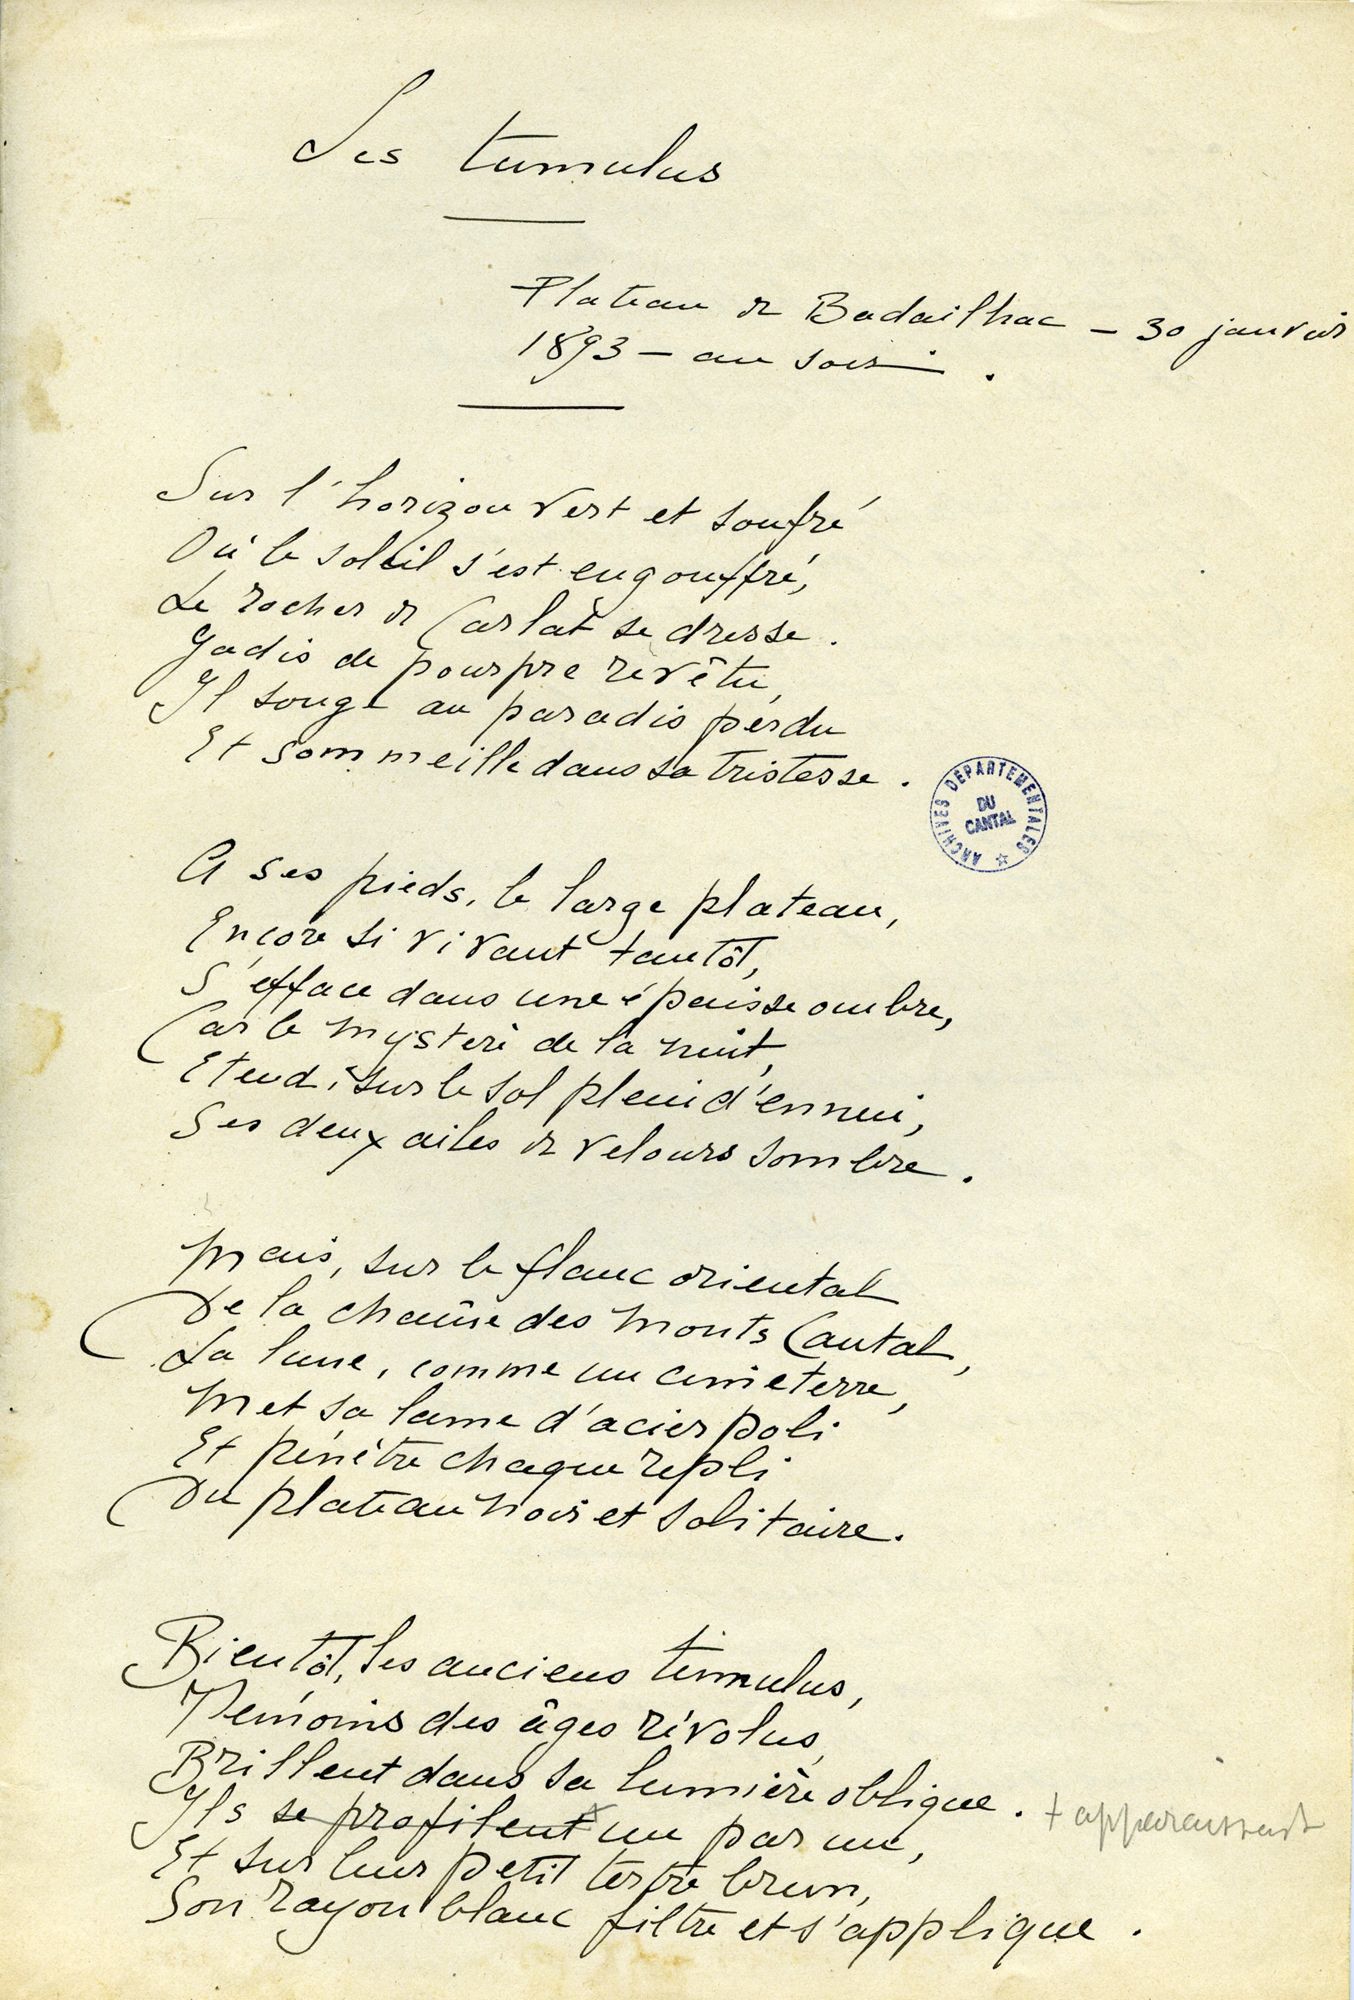 Les tumulus
Plateau de Badailhac – 30 janvier
1893 – au soir.
Sur l'horizon vert et soufré
Où le soleil s'est engouffré,
Le rocher de Carlat se dresse.
Jadis de pourpre revêtu,
Il songe au paradis perdu
Et sommeille dans sa tristesse.
A ses pieds, le large plateau,
Encore si vivant tantôt,
S'efface dans une épaisse ombre,
Car le mystère de la nuit,
Etend, sur le sol plein d'ennui,
Ses deux ailes de velours sombre.
ARCHIVES DEPARTEMENTALES
DU
CANTAL
Mais, sur le flanc oriental
De la chaîne des monts Cantal,
La lune, comme un cimeterre,
Met sa lame d'acier poli
Et pénètre chaque repli
Du plateau noir et solitaire.
Bientôt, les anciens tumulus,
Témoins des âges révolus,
Brillent dans sa lumière oblique.
Ils se profilent + un par un, + apparaissent
Et sur leur petit tertre brun,
Son rayon blanc filtre et s'applique.